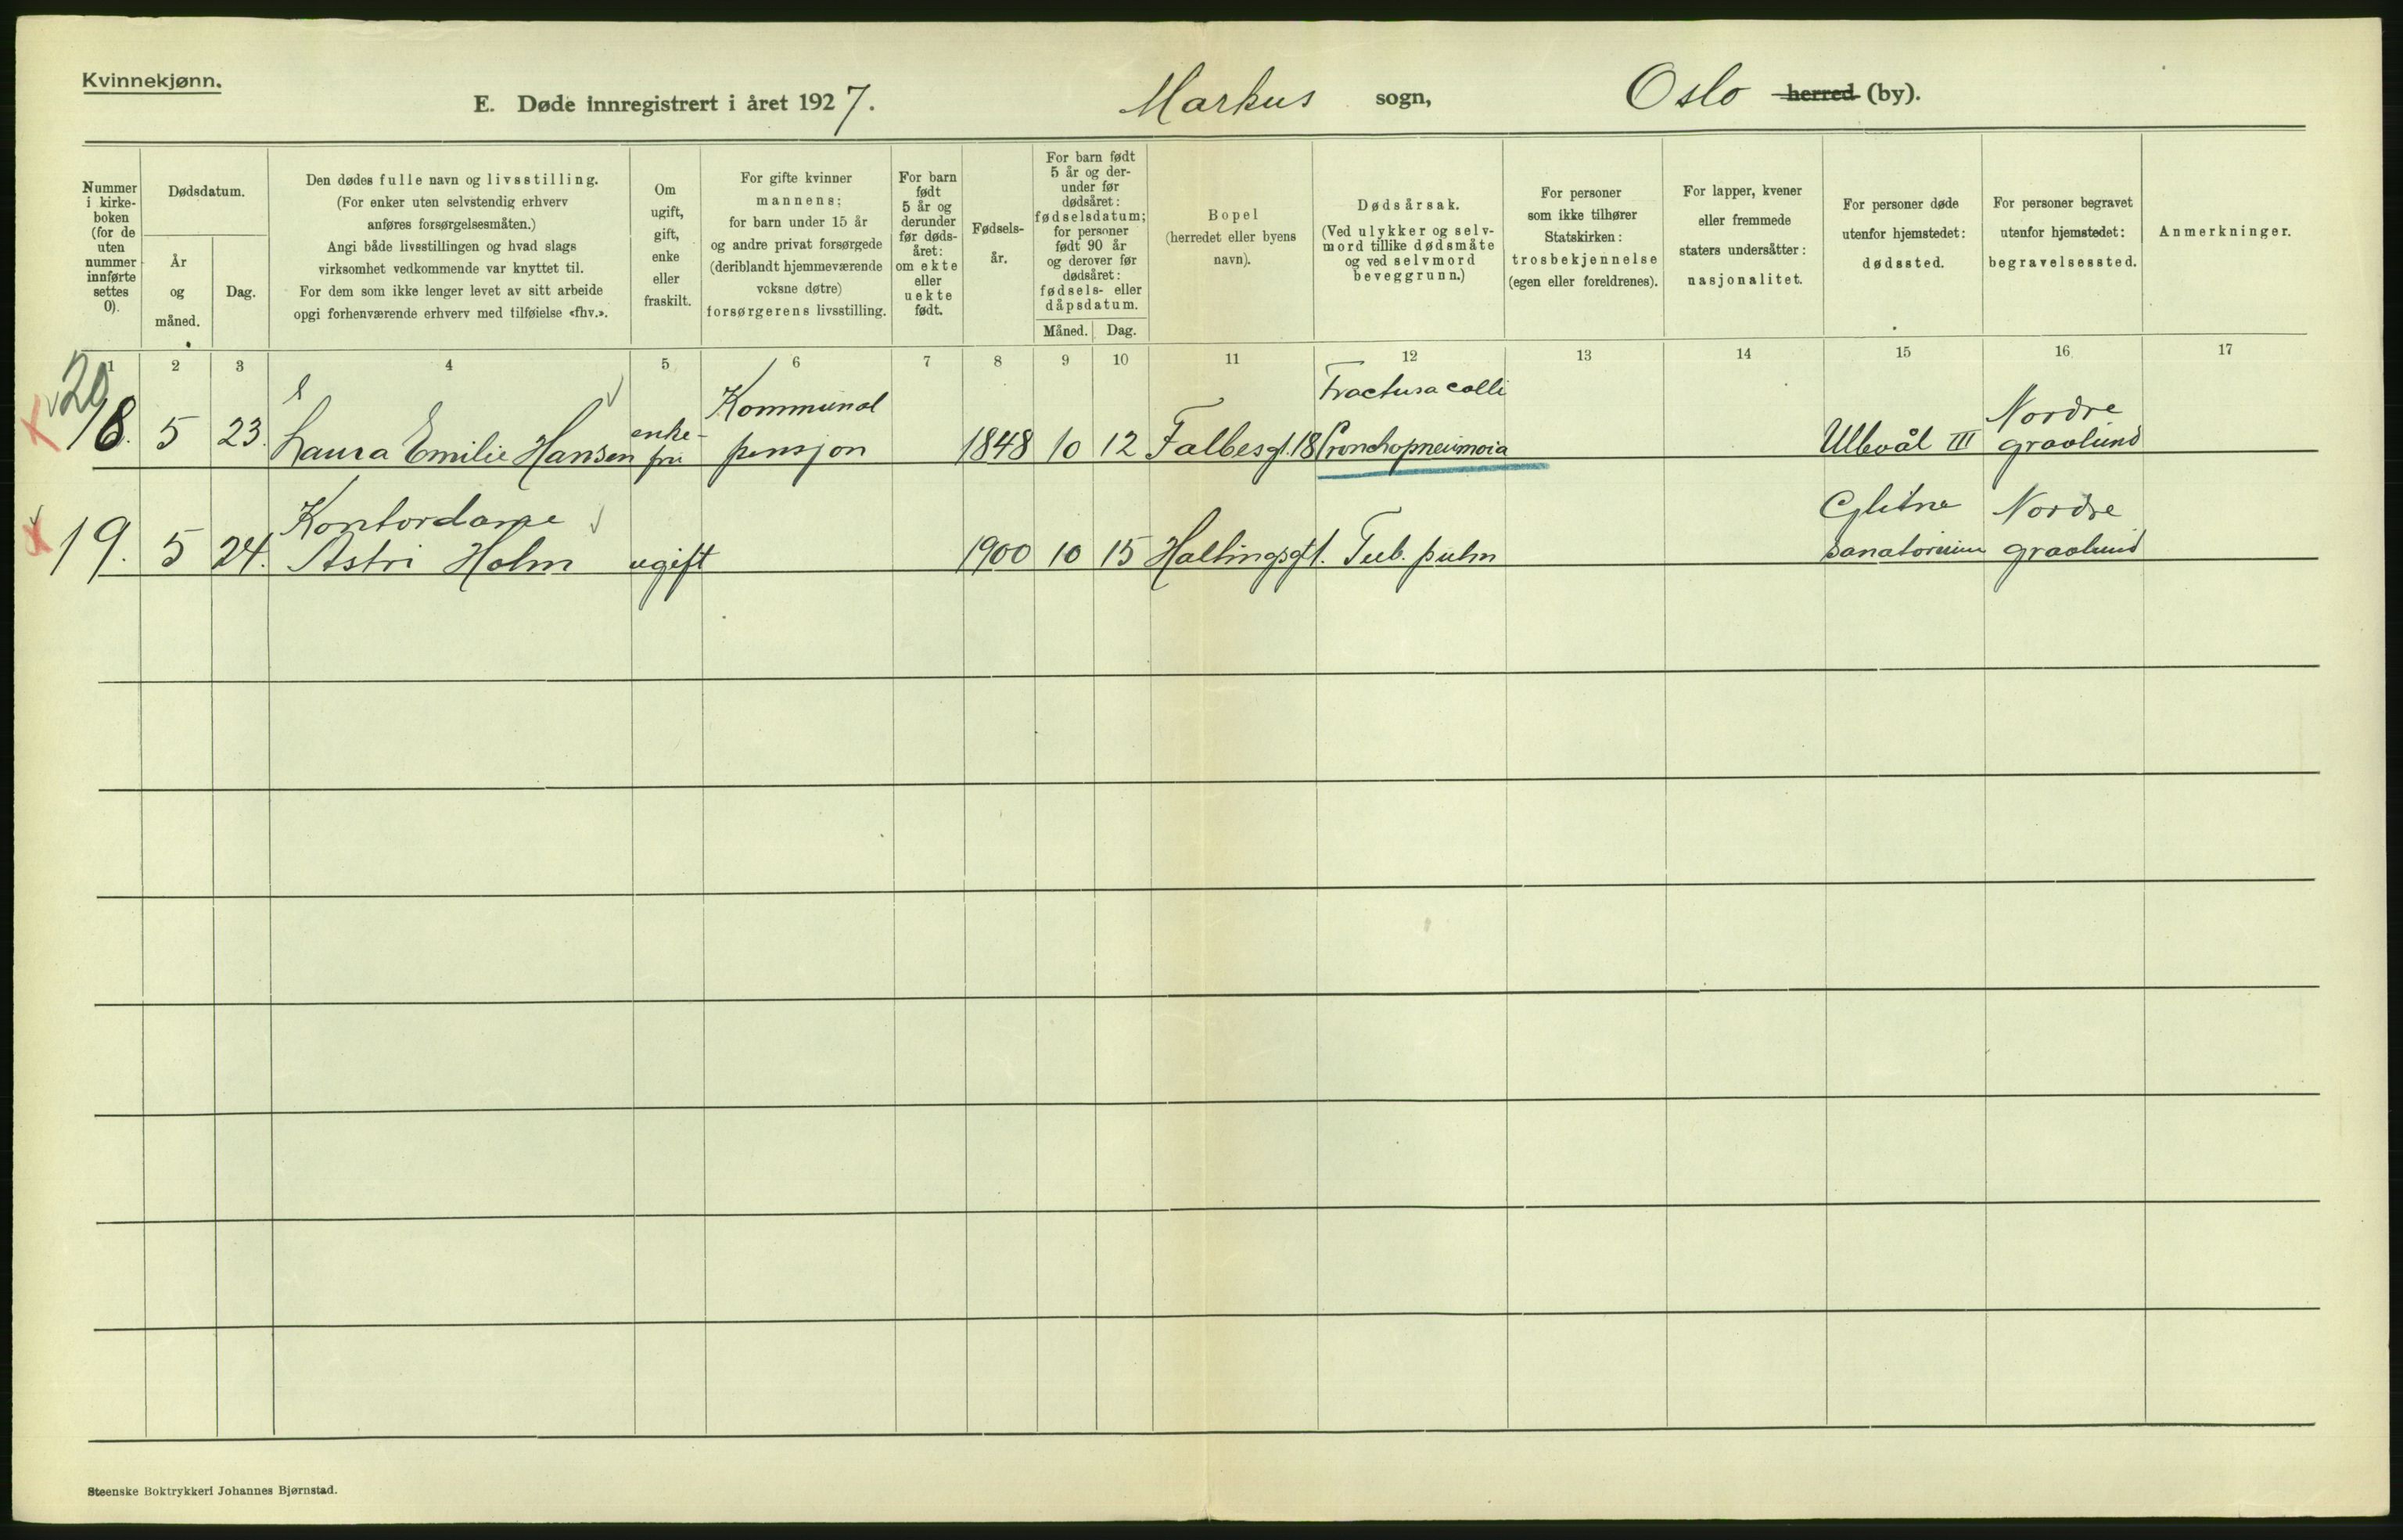 Kvinnekjønn.
E. Døde innregistrert i året 1927.
Markus sogn,
Oslo herred (by).
Nummer
i kirke-
boken
(for de
uten
nummer
innførte
settes
0).
Dødsdatum.
År
og
måned.
Dag.
Den dødes fulle navn og livsstilling.
(For enker uten selvstendig erhverv
anføres forsørgelsesmåten.)
Angi både livsstillingen og hvad slags
virksomhet vedkommende var knyttet til.
For dem som ikke lenger levet av sitt arbeide
opgi forhenværende erhverv med tilføielse «fhv.».
Om
ugift,
gift,
enke
eller
fraskilt.
For gifte kvinner
mannens;
for barn under 15 år
og andre privat forsørgede
(deriblandt hjemmeværende
voksne døtre)
forsørgerens livsstilling.
For barn
født
5 år og
derunder
før døds-
året:
om ekte
eller
uekte
født.
Fødsels-
år.
For barn født
5 år og der-
under før
dødsåret:
fødselsdatum;
for personer
født 90 år
og derover før
dødsåret:
fødsels- eller
dåpsdatum.
Måned.
Dag.
Bopel
(herredet eller byens
navn).
Dødsårsak.
(Ved ulykker og selv-
mord tillike dødsmåte
og ved selvmord
beveggrunn.)
For personer
som ikke tilhører
Statskirken:
trosbekjennelse
(egen eller foreldrenes).
For lapper, kvener
eller fremmede
staters undersåtter:
nasjonalitet.
For personer døde
utenfor hjemstedet:
dødssted.
For personer begravet
utenfor hjemstedet:
begravelsessted.
Anmerkninger.
1 2 3 4 5 6 7 8 9 10 11 12 13 14 15 16 17
20
18. 5 23. Laura Emilie Hansen
enke-
fru
Kommunal
pensjon
1848 10 12 Falbesgt. 18
Fractura colli
Bronchopneumoia
Ullevål III
Nordre
gravlund
19. 5 24.
Kontordame
Astri Holm
ugift 1900 10 15 Haltingsgt 1. Tub. pulm
Glitne
Sanatorium
Nordre
gravlund
Steenske Boktrykkeri Johannes Bjørnstad.